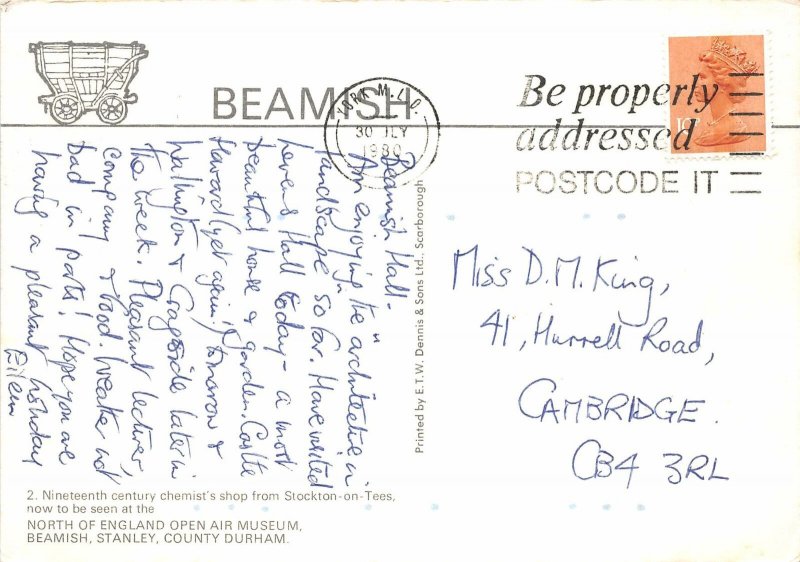 BEAMISH
YORK M.L.O.
30 JLY
1980
Be properly
addressed
POSTCODE IT
10P
Beamish Hall -
Am enjoying the "architecture in
landscape" so far. Have visited
Levens Hall today - a most
beautiful house & garden. Castle
Howard (yet again!) tomorrow &
Wallington & Cragside later in
the week. Pleasant lecturer,
company & food. Weather not
bad in parts! Hope you are
having a pleasant holiday
Eileen
Printed by E.T.W. Dennis & Sons Ltd., Scarborough
Miss D.M. King,
41, Hurrell Road,
CAMBRIDGE.
CB4 3RL
2. Nineteenth century chemist's shop from Stockton-on-Tees,
now to be seen at the
NORTH OF ENGLAND OPEN AIR MUSEUM,
BEAMISH, STANLEY, COUNTY DURHAM.